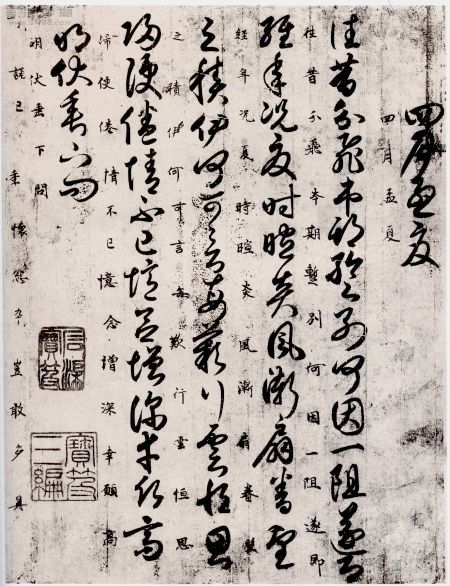 四月孟夏
四月孟夏
往昔分飛本期暫別何因一阻遂即
往昔分飛本期暫別何因一阻遂即
經年況夏時暄炎風漸扇眷望
經年況夏時暄炎風漸扇眷望
之積伊何可言每歎行雲恒思
之積伊何可言每歎行雲恒思
歸使倦情不已憶念增深幸願高
歸使倦情不已憶念增深幸願高
明伏垂下問
明伏垂下問
懷豈敢多具
石渠寶笈
寶笈三編